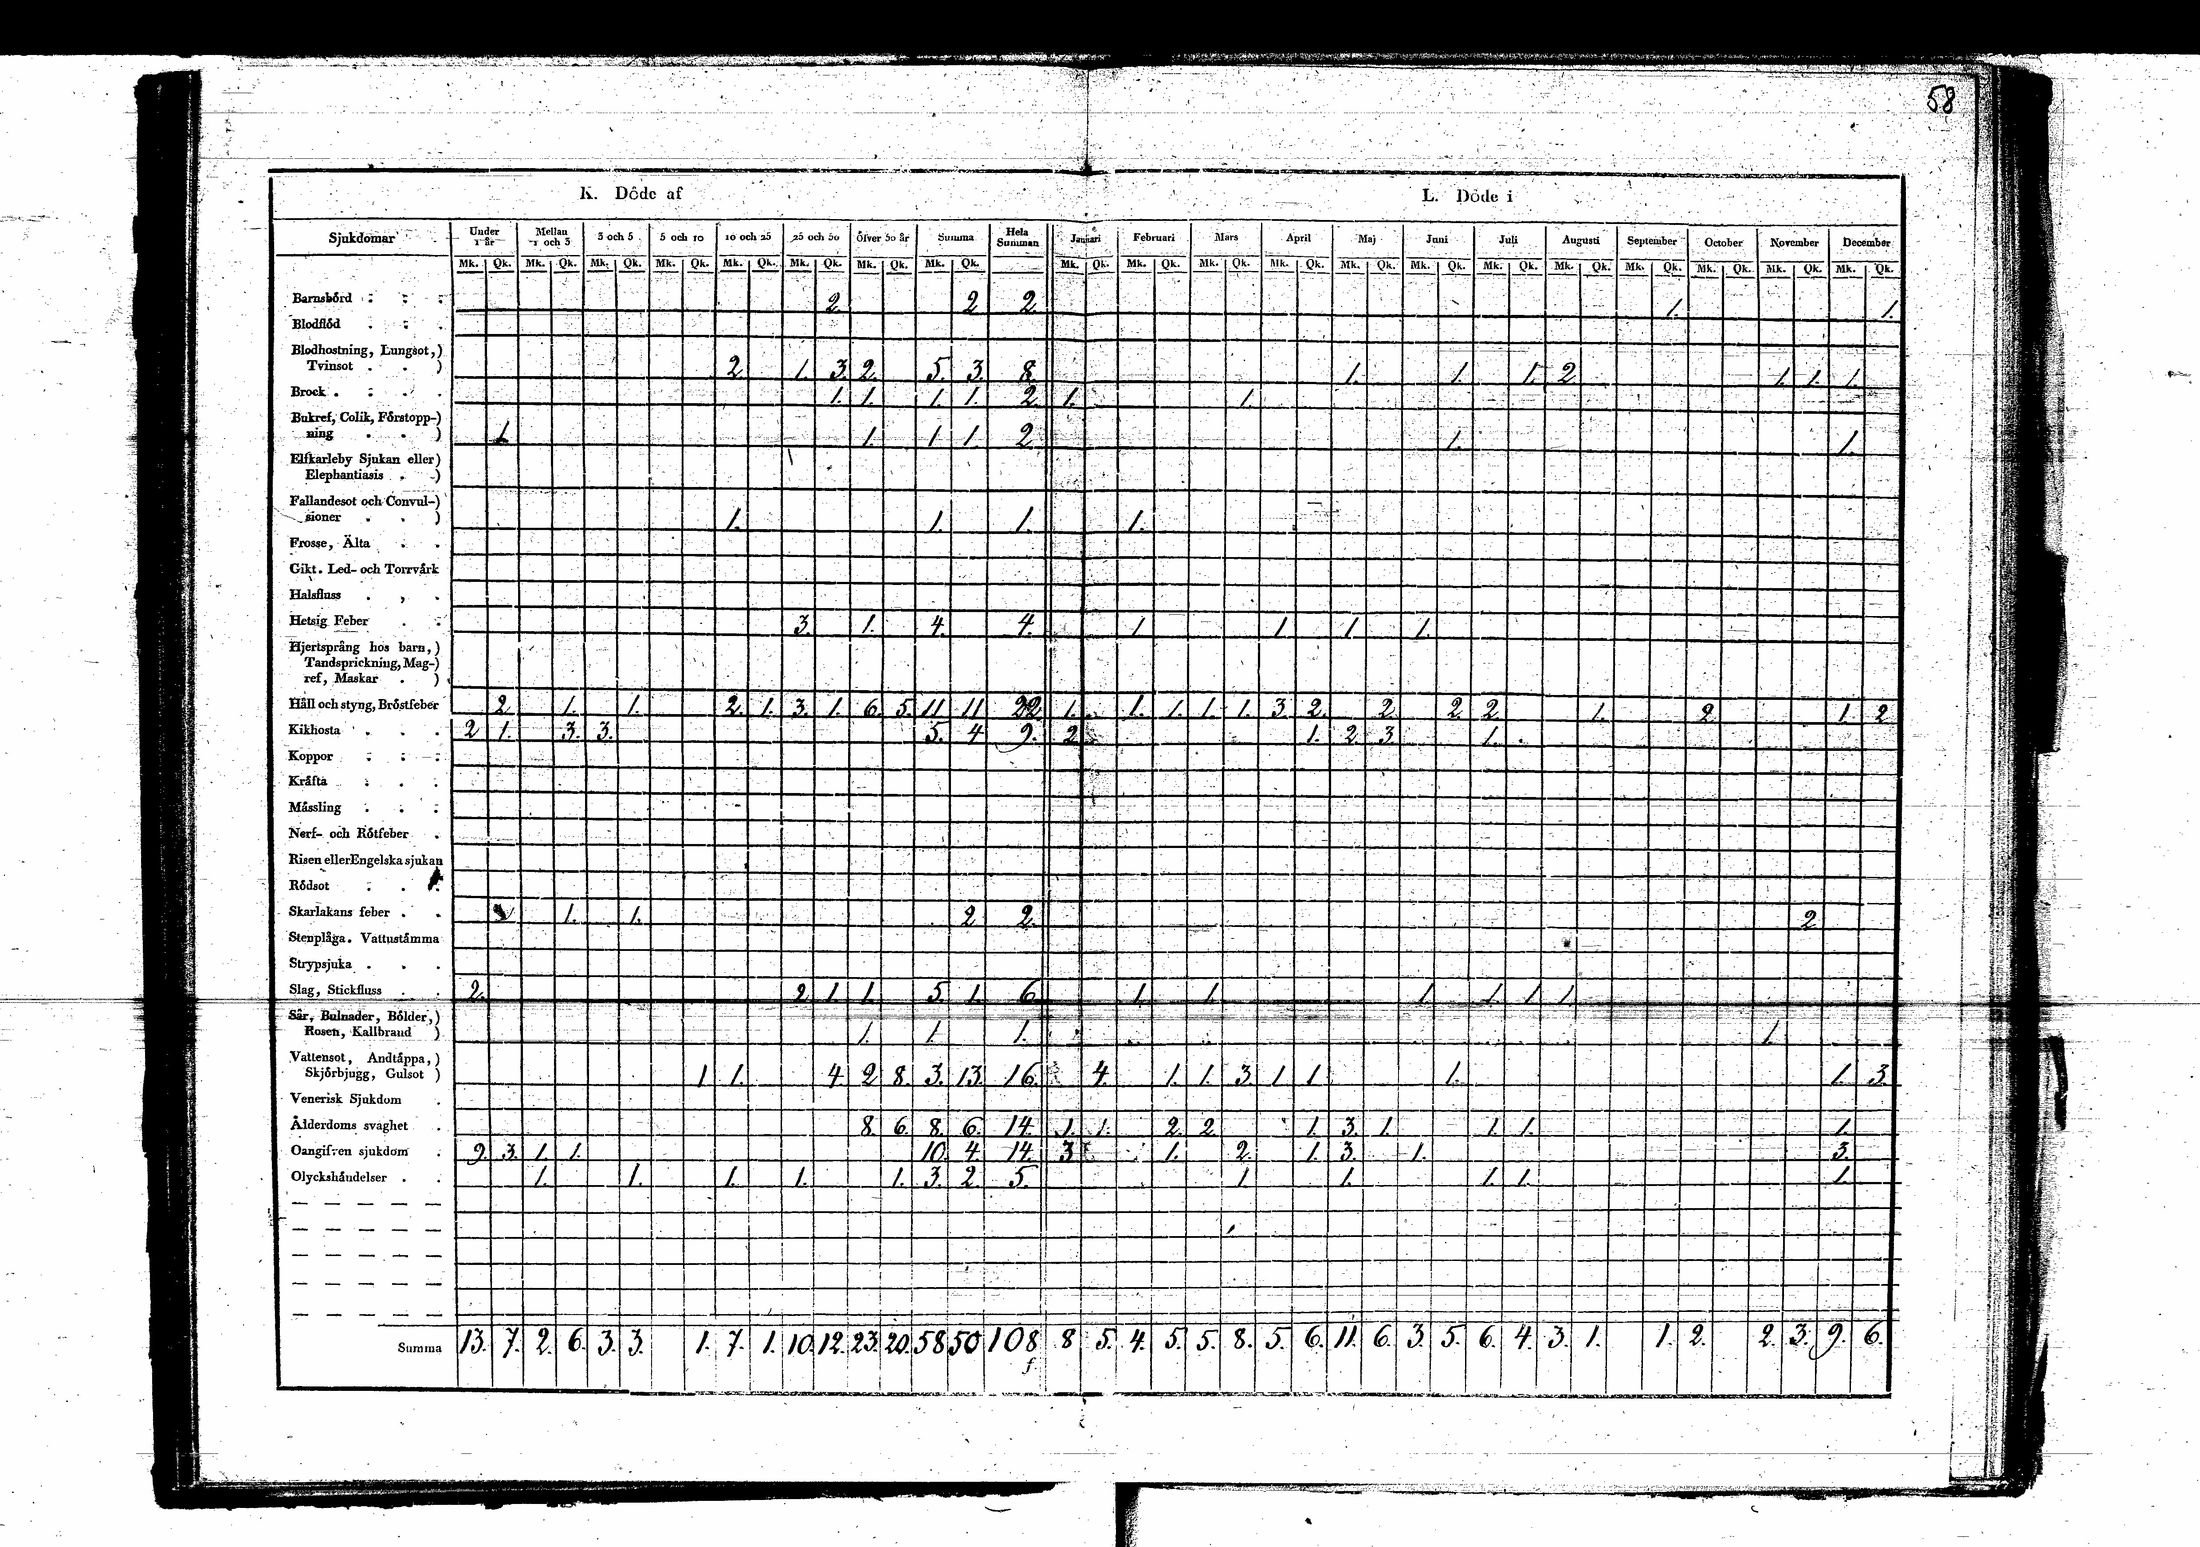 58
K. Döde af L. Döde i
Sjukdomar Under 1 år Mellan 1 och 3 3 och 5 5 och 10 10 och 25 25 och 50 Öfver 50 år Summa Hela Summan Januari Februari Mars April Maj Juni Juli Augusti September October November December
Mk. Qk. Mk. Qk. Mk. Qk. Mk. Qk. Mk. Qk. Mk. Qk. Mk. Qk. Mk. Qk. Mk. Qk. Mk. Qk. Mk. Qk. Mk. Qk. Mk. Qk. Mk. Qk. Mk. Qk. Mk. Qk. Mk. Qk. Mk. Qk. Mk. Qk. Mk. Qk.
Barnsbörd . . . 2. 2 2. 1. 1.
Blodflöd . . .
Blodhostning, Lungsot,)
Tvinsot . . ) 2 1. 3. 2. 5. 3. 8. 1. 1. 1. 2 1. 1. 1.
Brock . . . . 1. 1. 1. 1. 2 1. 1.
Bukref, Colik, Förstopp-)
ning . . ) 1 1. 1 1. 2 1. 1.
Elfkarleby Sjukan eller)
Elephantiasis . )
Fallandesot och Convul-)
sioner . . ) 1. 1. 1. 1.
Frosse, Älta . .
Gikt. Led- och Torrvärk
Halsfluss . , .
Hetsig Feber . . 3. 1. 4. 4. 1 1 1 1.
Hjertsprång hos barn,)
Tandsprickning, Mag-)
ref, Maskar . )
Håll och styng, Bröstfeber 2 1. 1. 2. 1. 3. 1. 6. 5. 11 11 22. 1. 1. 1. 1. 1. 3. 2. 2. 2. 2. 1. 2 1. 2
Kikhosta . . . 2 1. 3. 3. 5. 4 9. 2 1. 2 3. 1.
Koppor . . .
Kräfta . . .
Mässling . . .
Nerf- och Rötfeber .
Risen eller Engelska sjukan
Rödsot . . .
Skarlakans feber . . 1. 1. 2 2. 2
Stenplåga. Vattustämma
Strypsjuka . . .
Slag, Stickfluss . . 2. 2 1. 1. 5. 1. 6. 1. 1. 1 1. 1 1
Sår, Bulnader, Bölder,)
Rosen, Kallbrand ) 1. 1. 1. 1.
Vattensot, Andtäppa,)
Skjörbjugg, Gulsot ) 1 1. 4 2 8. 3. 13. 16. 4. 1. 1. 3 1 1 1. 1. 3.
Venerisk Sjukdom .
Ålderdoms svaghet . 8. 6. 8. 6. 14 1. 1. 2. 2. 1. 3. 1. 1. 1. 1.
Oangifven sjukdom . 9. 3. 1. 1. 10. 4. 14. 3 1. 2. 1. 3. 1. 3.
Olyckshändelser . . 1. 1. 1. 1. 1. 3. 2. 5. 1 1. 1. 1. 1.
Summa 13. 7. 2. 6. 3. 3. 1. 7. 1. 10. 12. 23. 20. 58 50 108 8 5. 4. 5. 5. 8. 5. 6. 11. 6. 3. 5. 6. 4. 3. 1. 1. 2. 2. 3. 9. 6.